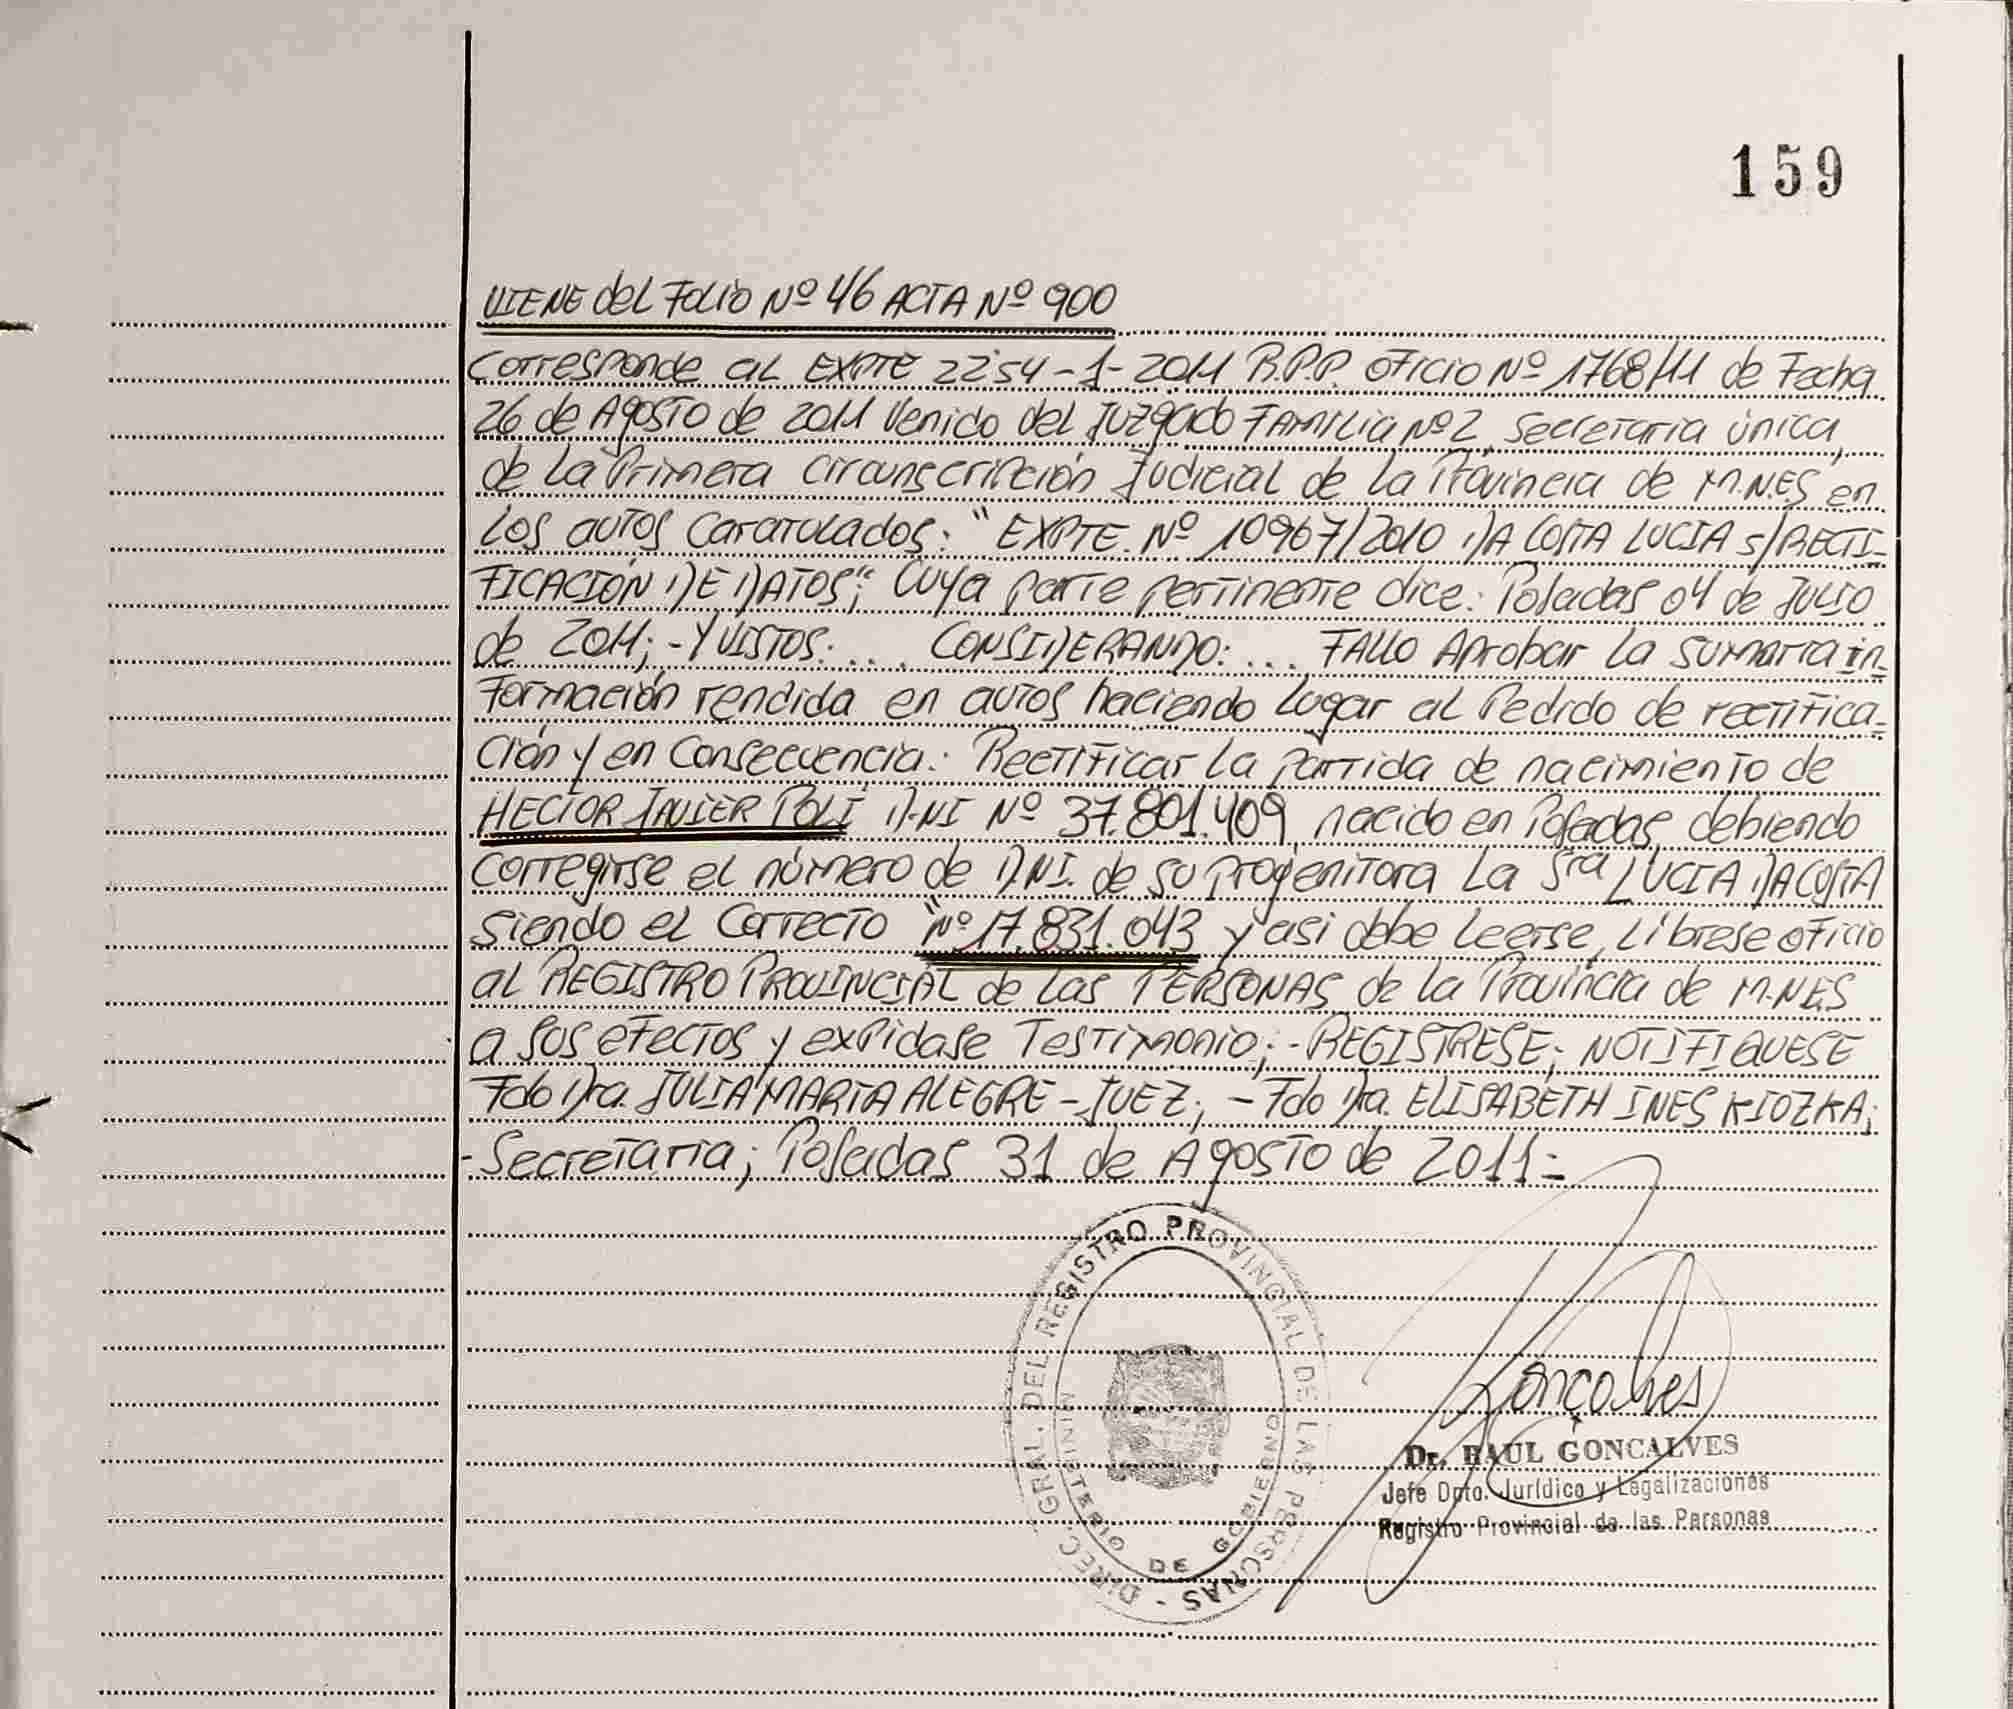 159
VIENE del FOLIO Nº 46 ACTA Nº 900
Corresponde al EXPTE 2254-1-2011 R.P.P. oficio Nº 1768/11 de Fecha
26 de Agosto de 2011 Venido del Juzgado FAMILIA Nº 2, Secretaria única,
de la Primera Circunscripción Judicial de la Provincia de M.NES en
Los autos Caratulados: "EXPTE. Nº 10967/2010 DA COSTA LUCIA s/RECTI-
FICACIÓN DE DATOS"; Cuya parte pertinente dice: Posadas 04 de Julio
de 2011; -Y VISTOS: .... CONSIDERANDO: ... FALLO Aprobar la sumaria in-
formación rendida en autos haciendo lugar al Pedido de rectifica-
ción y en Consecuencia: Rectificar la partida de nacimiento de
HECTOR JAVIER POLI D.NI Nº 37.801.409 nacido en Posadas, debiendo
corregirse el número de D.NI. de su progenitora la Sra LUCIA DA COSTA
siendo el Correcto "Nº 17.831.043 y asi debe leerse, Líbrese oficio
al REGISTRO PROVINCIAL de las PERSONAS de la Provincia de M.NES
a sus efectos y expidase Testimonio; -REGISTRESE; NOTIFIQUESE
Fdo Dra. JULIA MARIA ALEGRE - JUEZ; - Fdo Dra. ELISABETH INES KIOZKA;
-Secretaria; Posadas 31 de Agosto de 2011=
DIREC. GRAL. DEL REGISTRO PROVINCIAL DE LAS PERSONAS -
MINISTERIO DE GOBIERNO
Gonçalves
Dr. RAUL GONCALVES
Jefe Dpto. Jurídico y Legalizaciones
Registro Provincial de las Personas